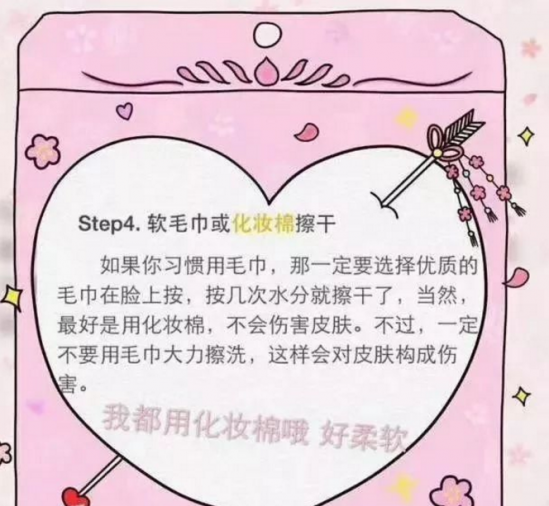 Step4. 软毛巾或化妆棉擦干
如果你习惯用毛巾，那一定要选择优质的
毛巾在脸上按，按几次水分就擦干了，当然，
最好是用化妆棉，不会伤害皮肤。不过，一定
不要用毛巾大力擦洗，这样会对皮肤构成伤
害。
我都用化妆棉哦 好柔软